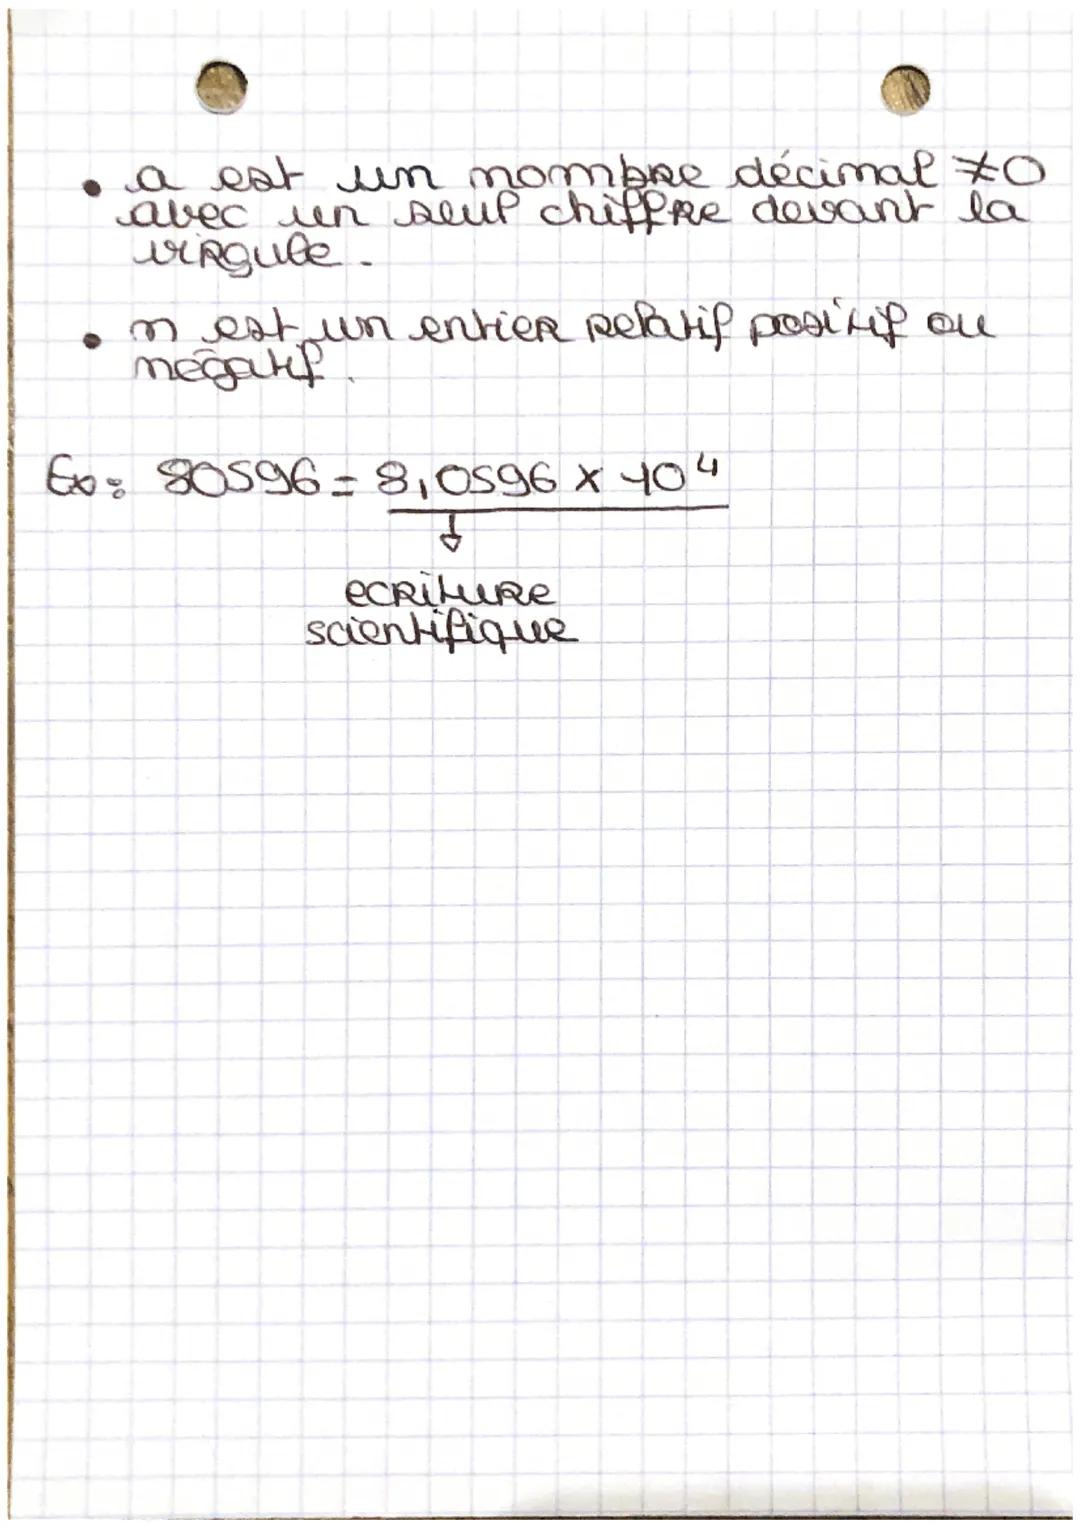 • a est un nombre décimal ≠0
avec un seul chiffre devant la
virgule.
• n est un entier relatif positif ou
négatif.
Ex: 80596 = 8,0596 × 10⁴
↓
ecriture
scientifique